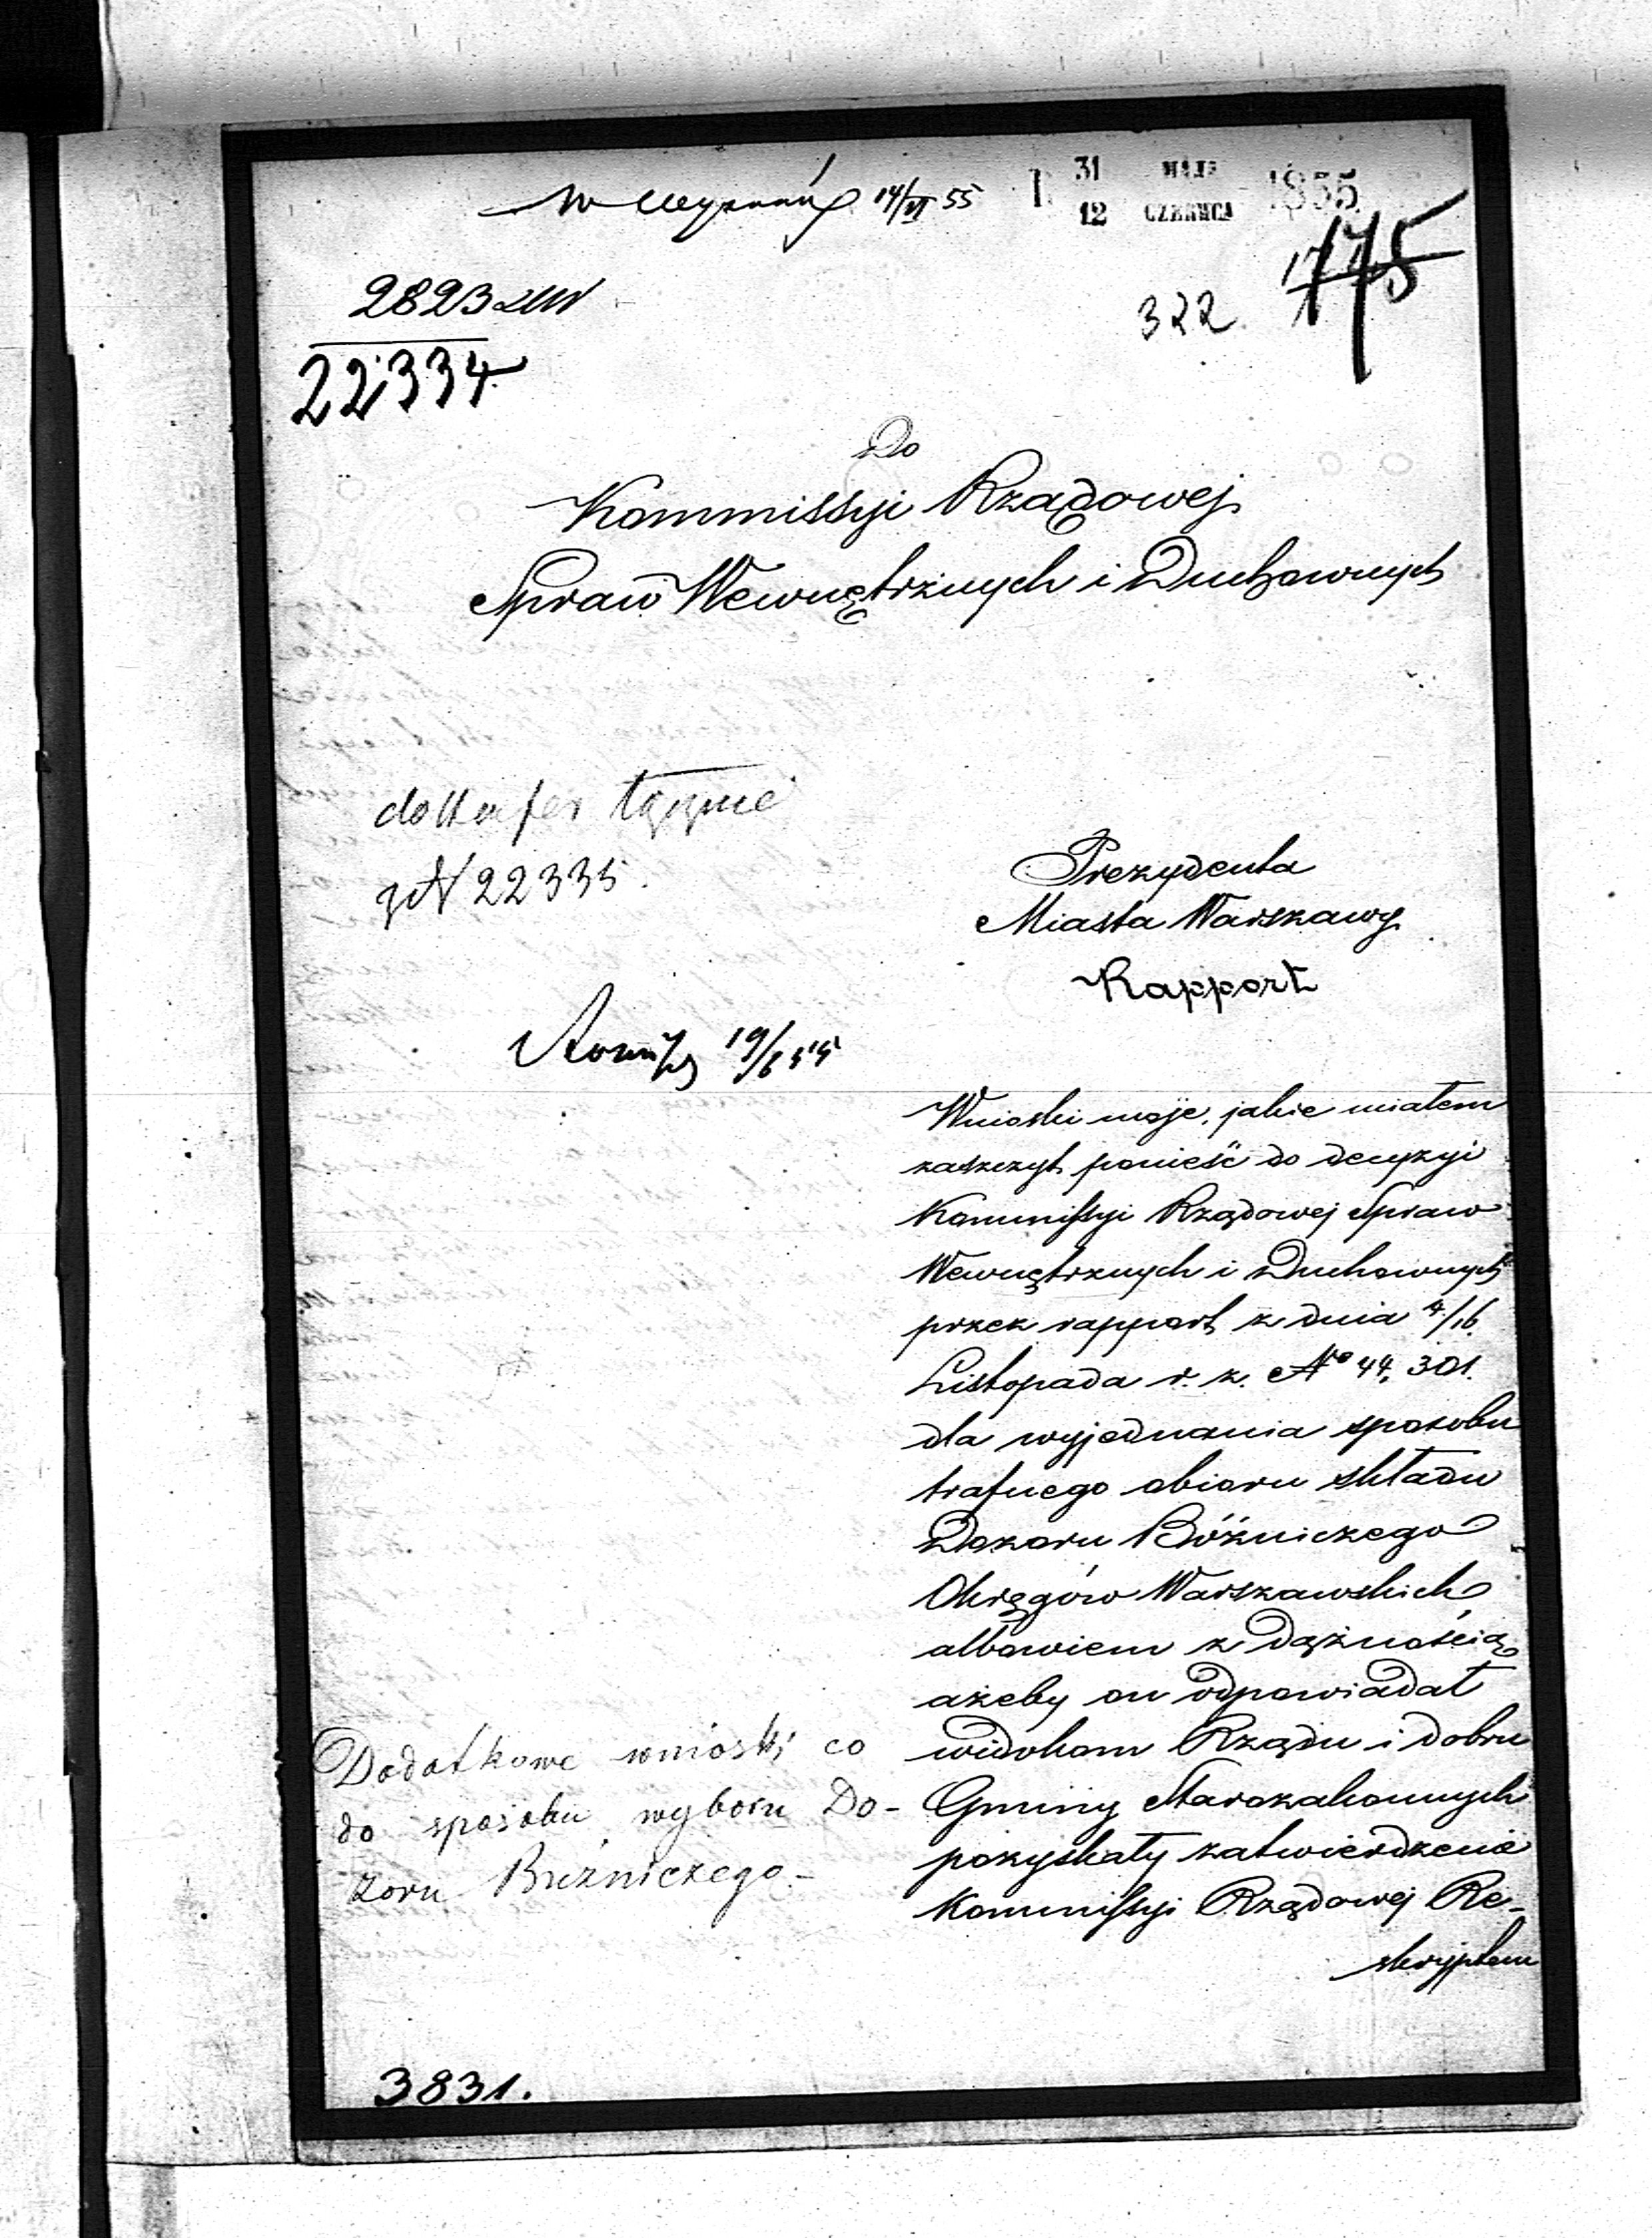 14/VI 55
31 MAJA 1855
12 CZERWCA
775
322
2823
22334
Do
Kommissyi Rządowej
Spraw Wewnętrznych i Duchownych
łącznie
z N 22335.
Prezydenta
Miasta Warszawy
Rapport
19/6 55
Wnioski moje, jakie miałem
zaszczyt ponieść do decyzyi
Kommissyi Rządowej Spraw
Wewnętrznych i Duchownych
przez rapport z dnia 4/16
Listopada r. z. No 44,301.
dla wyjednania sposobu
trafnego obioru składu
Dozoru Bóźniczego
Okręgów Warszawskich
albowiem z dążnością
ażeby on odpowiadał
widokom Rządu i dobru
Gminy Starozakonnych
pozyskały zatwierdzenie
Kommissyi Rządowej Re-
skryptem
Dodatkowe wnioski co
do sposobu wyboru Do-
zoru Bużniczego.-
3831.